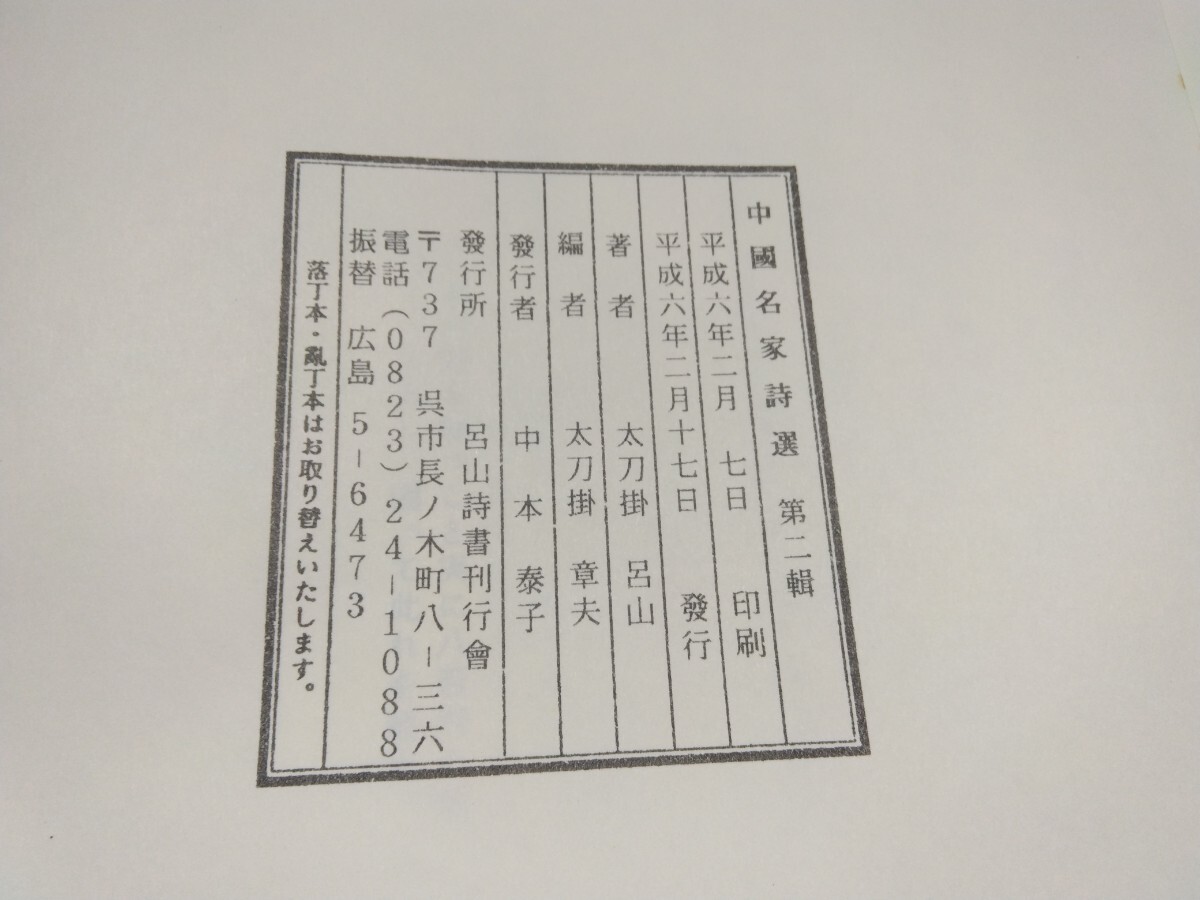 中國名家詩選 第二輯
平成六年二月 七日 印刷
平成六年二月十七日 發行
著者 太刀掛 呂山
編者 太刀掛 章夫
發行者 中本 泰子
發行所 呂山詩書刊行會
〒737 呉市長ノ木町八－三六
電話(0823)24－1088
振替 広島 5－6473
落丁本・亂丁本はお取り替えいたします。